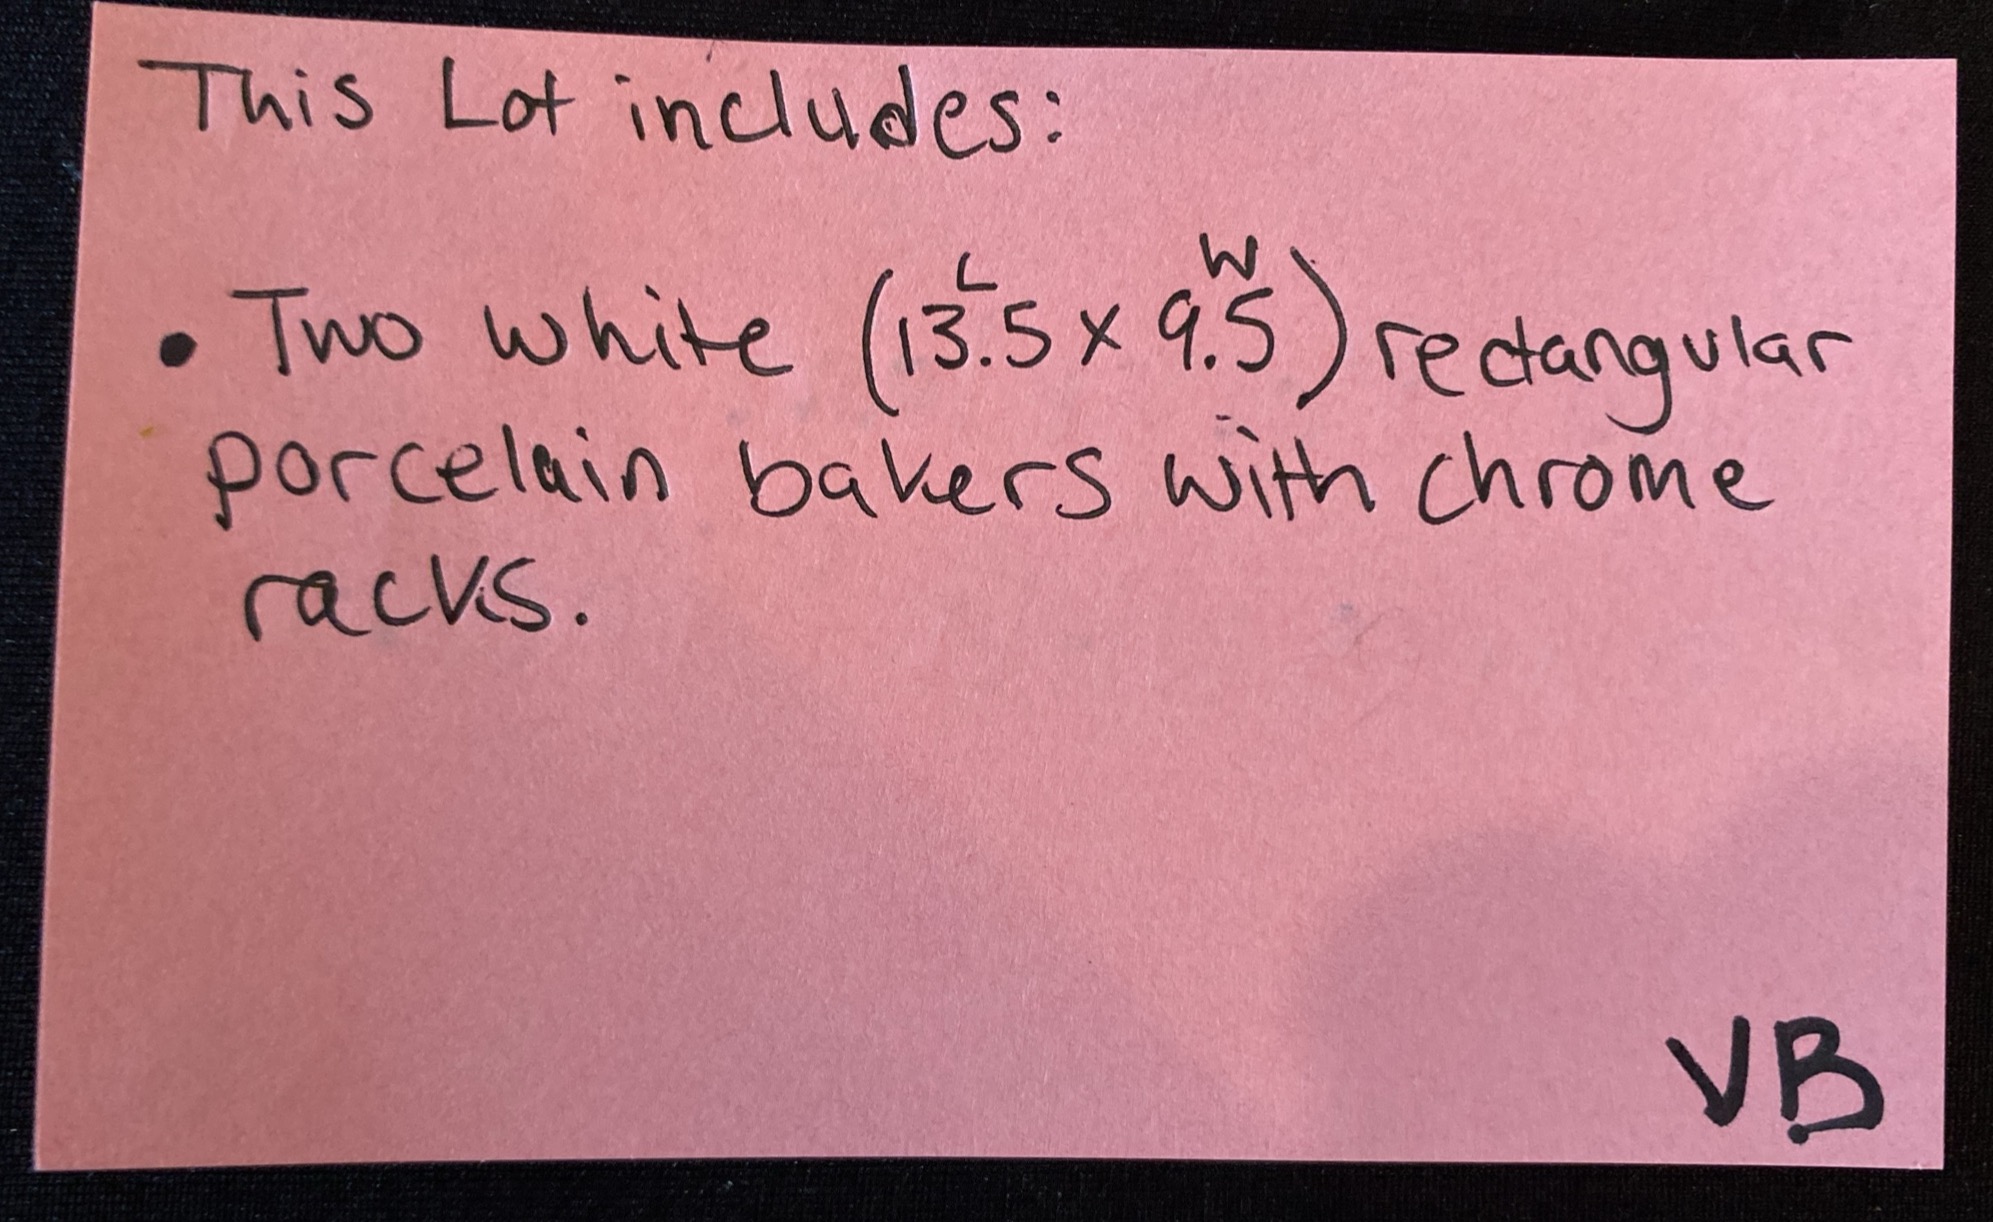 This Lot includes:
L W
• Two white (13.5 x 9.5) rectangular
porcelain bakers with chrome
racks.
VB